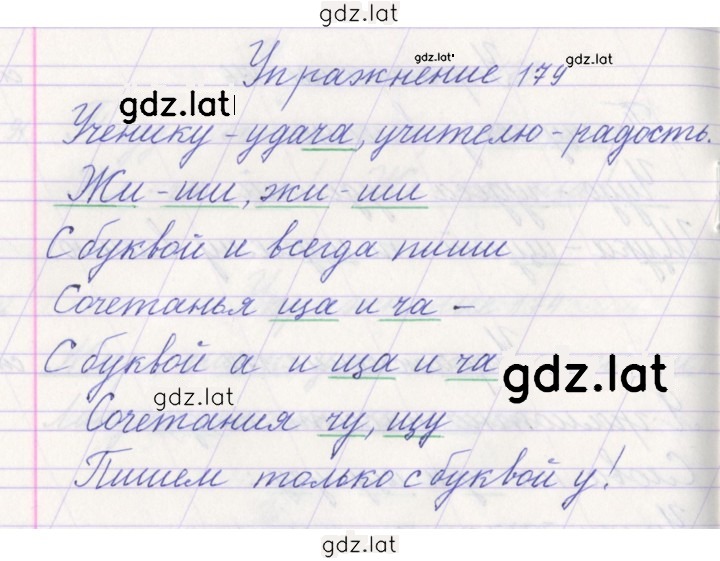 gdz.lat
Упражнение 179
gdz.lat gdz.lat
gdz.lat
Ученику - удача, учителю - радость.
Жи - ши, жи - ши
С буквой и всегда пиши
Сочетанья ща и ча -
С буквой а и ща и ча
gdz.lat
gdz.lat
Сочетания чу, щу
Пишем только с буквой у!
gdz.lat